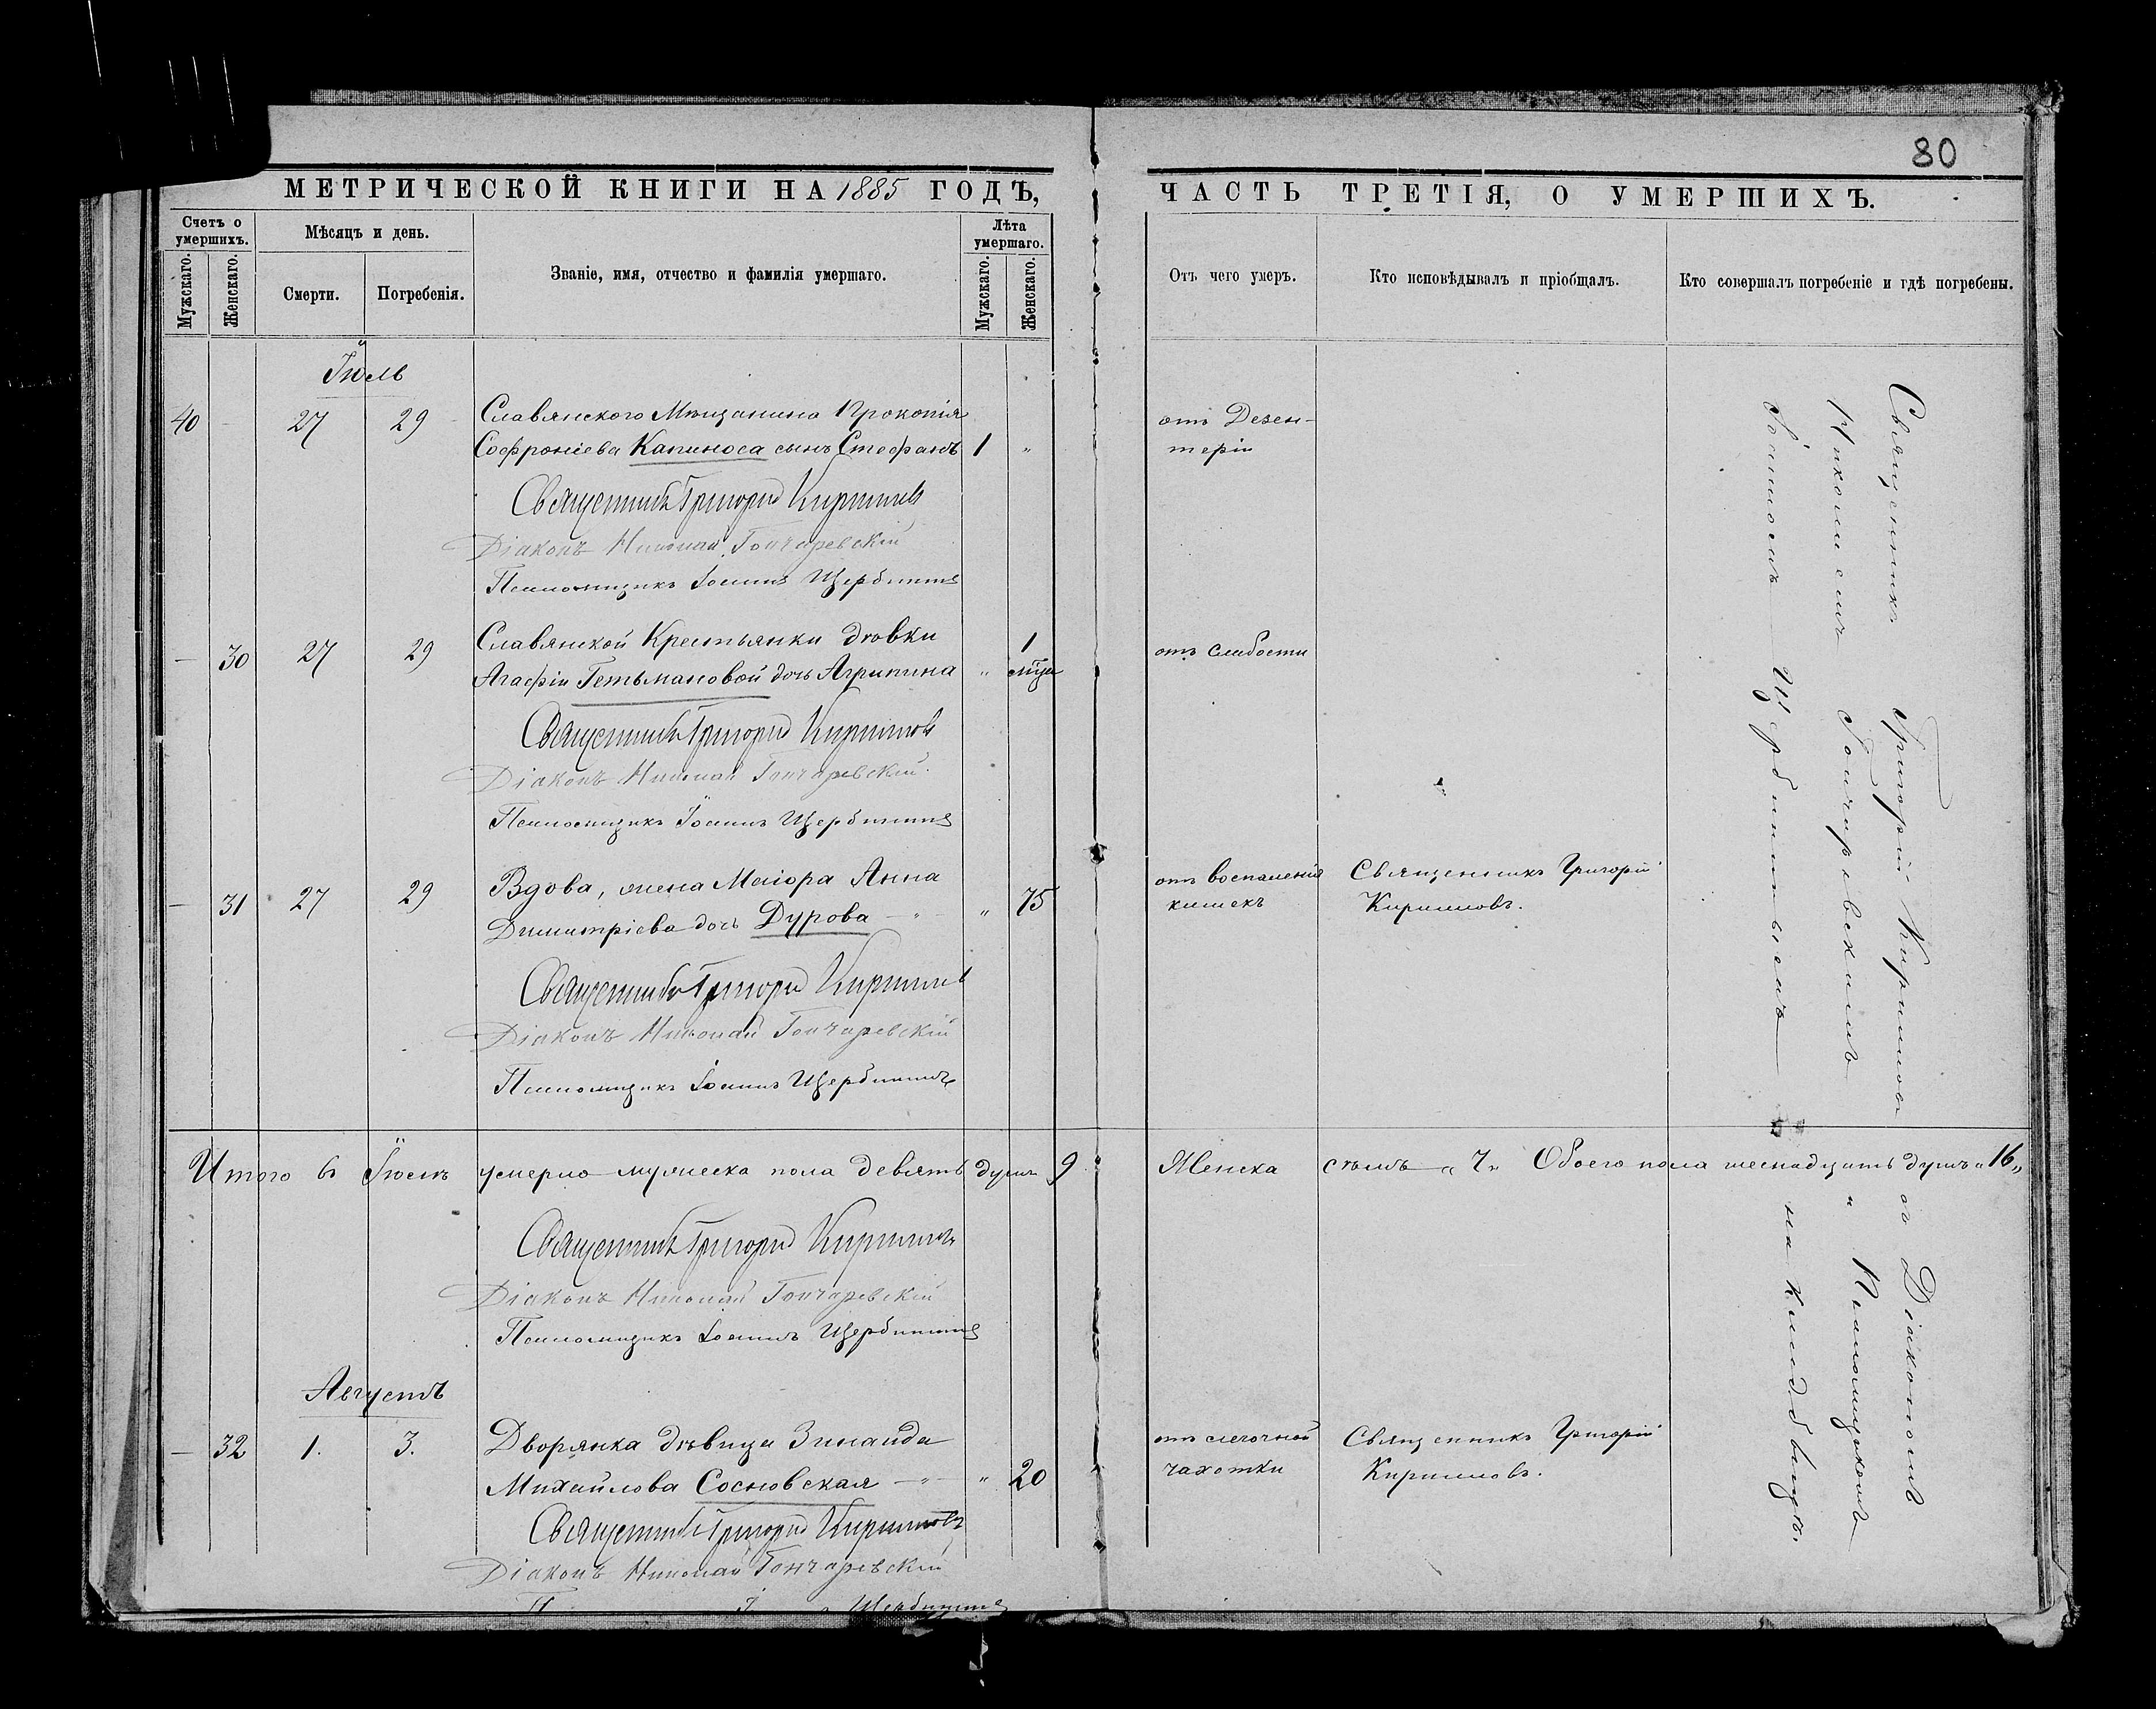 80
МЕТРИЧЕСКОЙ КНИГИ НА 1885 ГОДЪ,
ЧАСТЬ ТРЕТІЯ, О УМЕРШИХЪ.
Счетъ о умершихъ.
Мужскаго.
Женскаго.
Мѣсяцъ и день.
Смерти.
Погребенія.
Званіе, имя, отчество и фамилія умершаго.
Лѣта умершаго.
Мужскаго.
Женскаго.
Отъ чего умеръ.
Кто исповѣдывалъ и пріобщалъ.
Кто совершалъ погребеніе и гдѣ погребены.
Іюль
40 - 27 29 Славянского Мѣщанина Прокопія
Софроніева Капиноса сынъ Стефанъ 1 "
отъ Дезен-
теріи
Священникъ Григорій Кирилловъ
Діаконъ Николай Гончаревскій
Псаломщикъ Іоаннъ Щербининъ
- 30 27 29 Славянской Крестьянки дѣвки
Агафіи Гетьмановой дочь Агрипина " 1 мѣсяца
отъ слабости
Священникъ Григорій Кирилловъ
Діаконъ Николай Гончаревскій.
Псаломщикъ Іоаннъ Щербининъ
- 31 27 29 Вдова, жена Маіора Анна
Димитріева дочь Дурова - " " 75
отъ воспаленія
кишекъ
Священникъ Григорій
Кирилловъ.
Священникъ Григорій Кирилловъ
Діаконъ Николай Гончаревскій
Псаломщикъ Іоаннъ Щербининъ
Итого въ Іюлѣ умерло мужеска пола девять душъ 9 Женска семь „7„ Обоего пола шеснадцать душъ „16„
Священникъ Григорій Кирилловъ
Діаконъ Николай Гончаревскій
Псаломщикъ Іоаннъ Щербининъ
Августъ
- 32. 1. 3. Дворянка дѣвица Зинаида
Михайлова Сосновская - " - " 20
отъ легочной
чахотки
Священникъ Григорій
Кирилловъ.
Священникъ Григорій Кирилловъ
Діаконъ Николай Гончаревскій
Щербининъ
Священникъ Григорій Кирилловъ съ Діакономъ
Николаемъ Гончаревскимъ и Псаломщикомъ
Іоанномъ Щербининымъ на кладбищѣ.